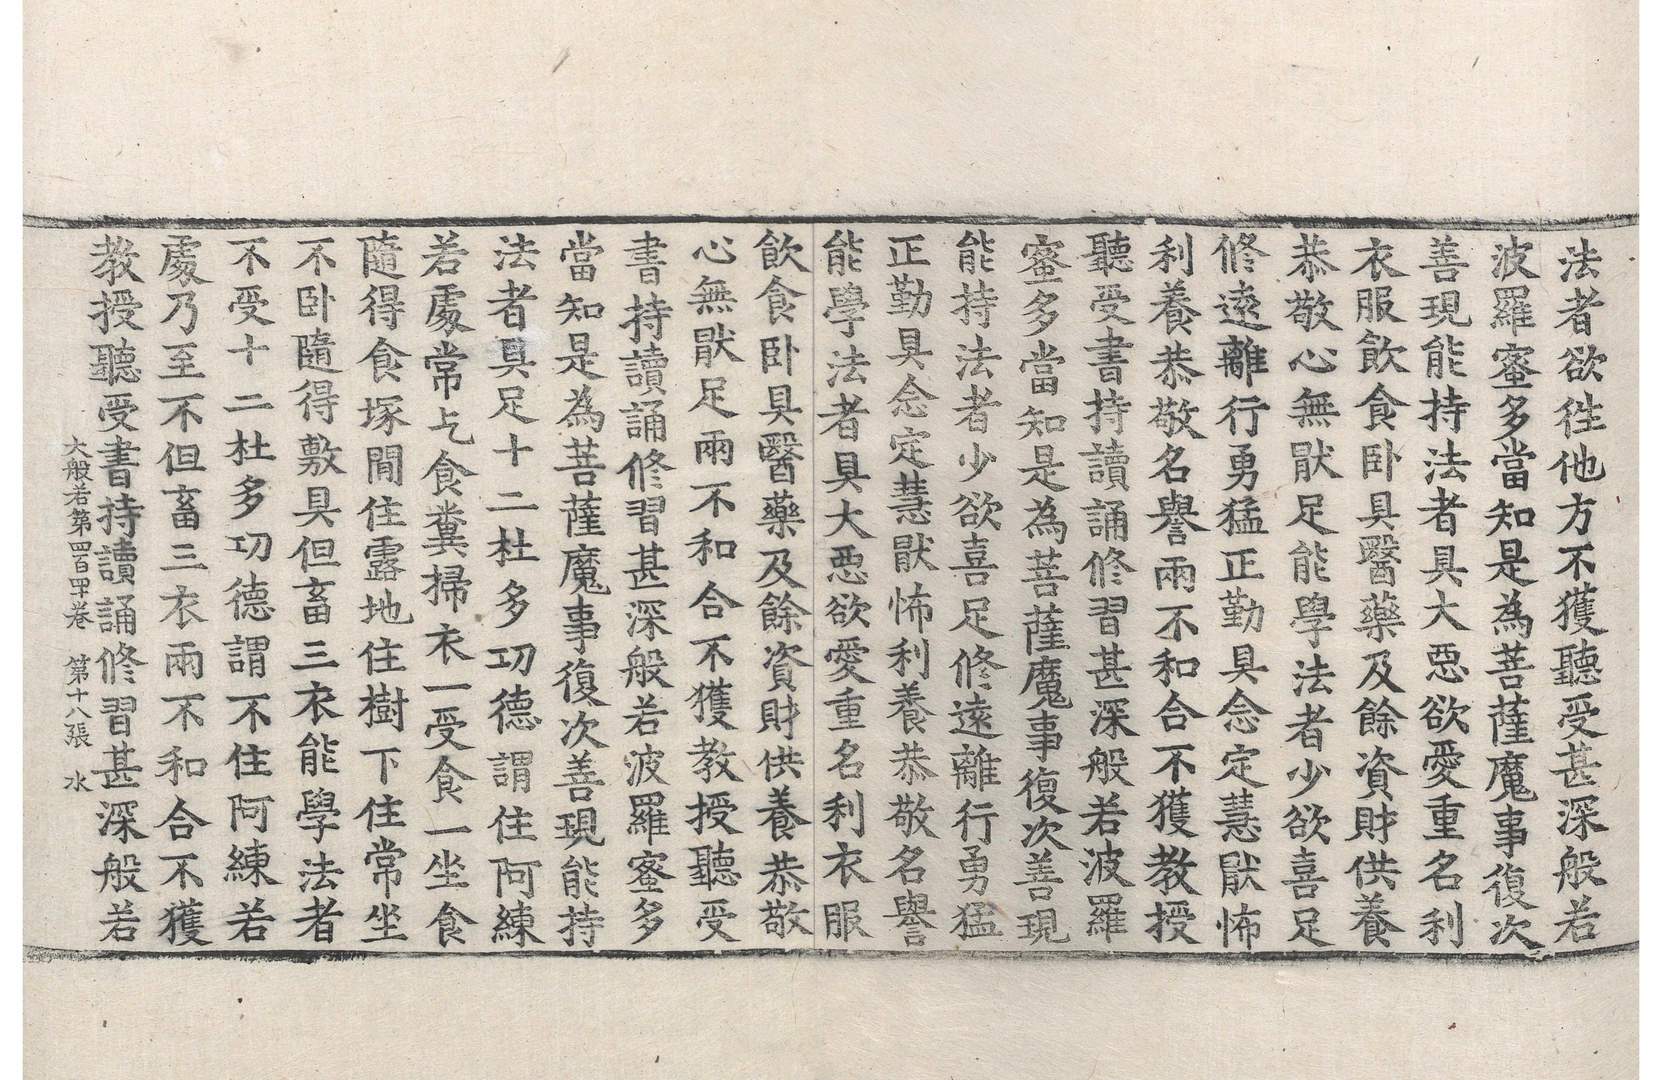 法者欲往他方不獲聽受甚深般若
波羅蜜多當知是為菩薩魔事復次
善現能持法者具大惡欲愛重名利
衣服飲食臥具醫藥及餘資財供養
恭敬心無猒足能學法者少欲喜足
修遠離行勇猛正勤具念定慧猒怖
利養恭敬名譽兩不和合不獲教授
聽受書持讀誦修習甚深般若波羅
蜜多當知是為菩薩魔事復次善現
能持法者少欲喜足修遠離行勇猛
正勤具念定慧猒怖利養恭敬名譽
能學法者具大惡欲愛重名利衣服
飲食臥具醫藥及餘資財供養恭敬
心無猒足兩不和合不獲教授聽受
書持讀誦修習甚深般若波羅蜜多
當知是為菩薩魔事復次善現能持
法者具足十二杜多功德謂住阿練
若處常乞食糞掃衣一受食一坐食
隨得食塚間住露地住樹下住常坐
不臥隨得敷具但畜三衣能學法者
不受十二杜多功德謂不住阿練若
處乃至不但畜三衣兩不和合不獲
教授聽受書持讀誦修習甚深般若
大般若第四百四十卷　第十八張　水